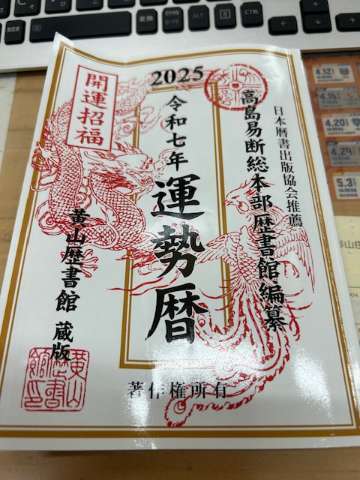 2025
開運招福
日本暦書出版協会推薦
高島易断総本部歴書館編纂
令和七年
運勢暦
黄山歴書館 蔵版
著作権所有
4.12
4.20
4.24
5.3